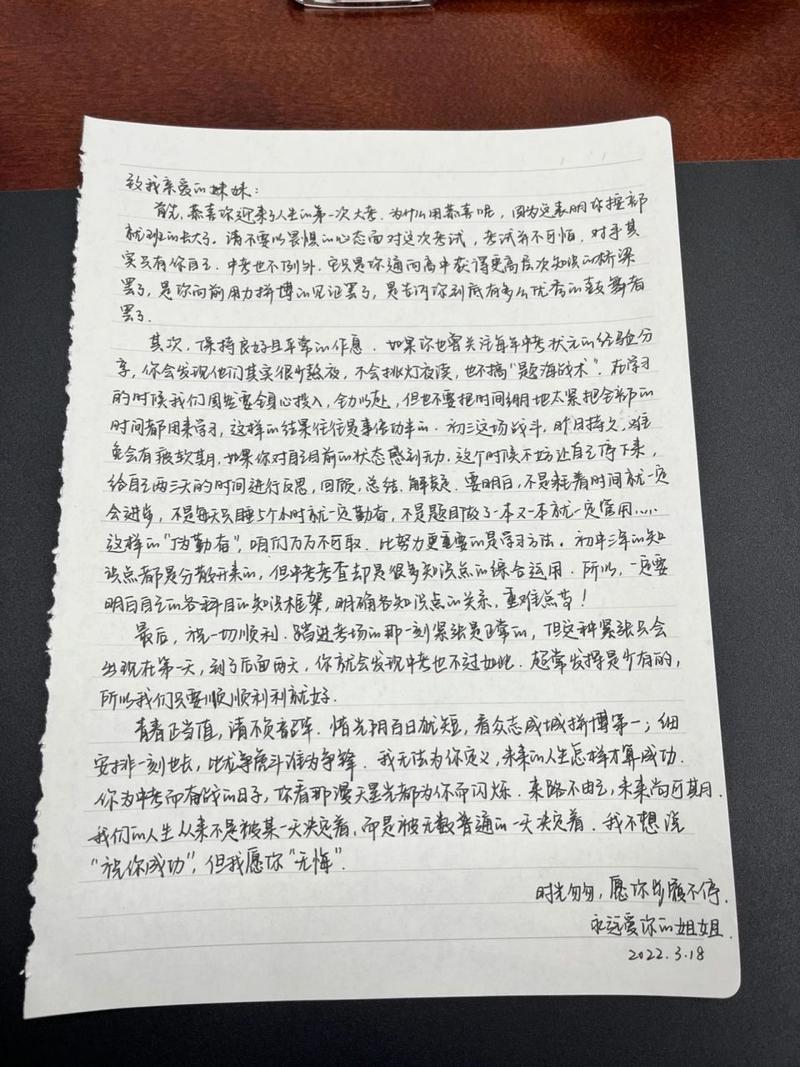 致我亲爱的妹妹：
首先，恭喜你迎来了人生的第一次大考，为什么用恭喜呢，因为这表明你按部
就班的长大了。请不要以畏惧的心态面对这次考试，考试并不可怕，对手其
实只有你自己。中考也不例外，它只是你通向高中获得更高层次知识的桥梁
罢了，是你向前用力拼搏的见证罢了，是告诉你到底有多么优秀的鼓舞者
罢了。
其次，保持良好且平常的作息。如果你也曾关注每年中考状元的经验分
享，你会发现他们其实很少熬夜，不会挑灯夜读，也不搞"题海战术"。在学习
的时候我们固然要全身心投入，全力以赴，但也不要把时间绷地太紧把全部的
时间都用来学习，这样的结果往往是事倍功半的。初三这场战斗，旷日持久，难
免会有疲软期，如果你对自己目前的状态感到无力，这个时候不妨让自己停下来，
给自己两三天的时间进行反思，回顾，总结，解疑。要明白，不是耗着时间就一定
会进步，不是每天只睡5个小时就一定勤奋，不是题目做了一本又一本就一定管用……
这样的"伪勤奋"，咱们万万不可取。比努力更重要的是学习方法。初中三年的知
识点都是分散开来的，但中考考查却是很多知识点的综合运用。所以，一定要
明白自己的各科目的知识框架，明确各知识点的关系，重难点等！
最后，祝一切顺利。踏进考场的那一刻紧张是正常的，但这种紧张只会
出现在第一天，到了后面两天，你就会发现中考也不过如此。超常发挥是少有的，
所以我们只要顺顺利利就好。
青春正当值，请不负韶华。惜光阴百日犹短，看众志成城拼搏第一；细
安排一刻也长，比龙争虎斗谁为争锋。我无法为你定义，未来的人生怎样才算成功。
你为中考而奋战的日子，你看那漫天星光都为你而闪烁。来路不由己，未来尚可其月。
我们的人生从来不是被某一天决定着，而是被无数普通的一天决定着。我不想说
"祝你成功"，但我愿你"无悔"。
时光匆匆，愿你步履不停。
永远爱你的姐姐。
2022.3.18